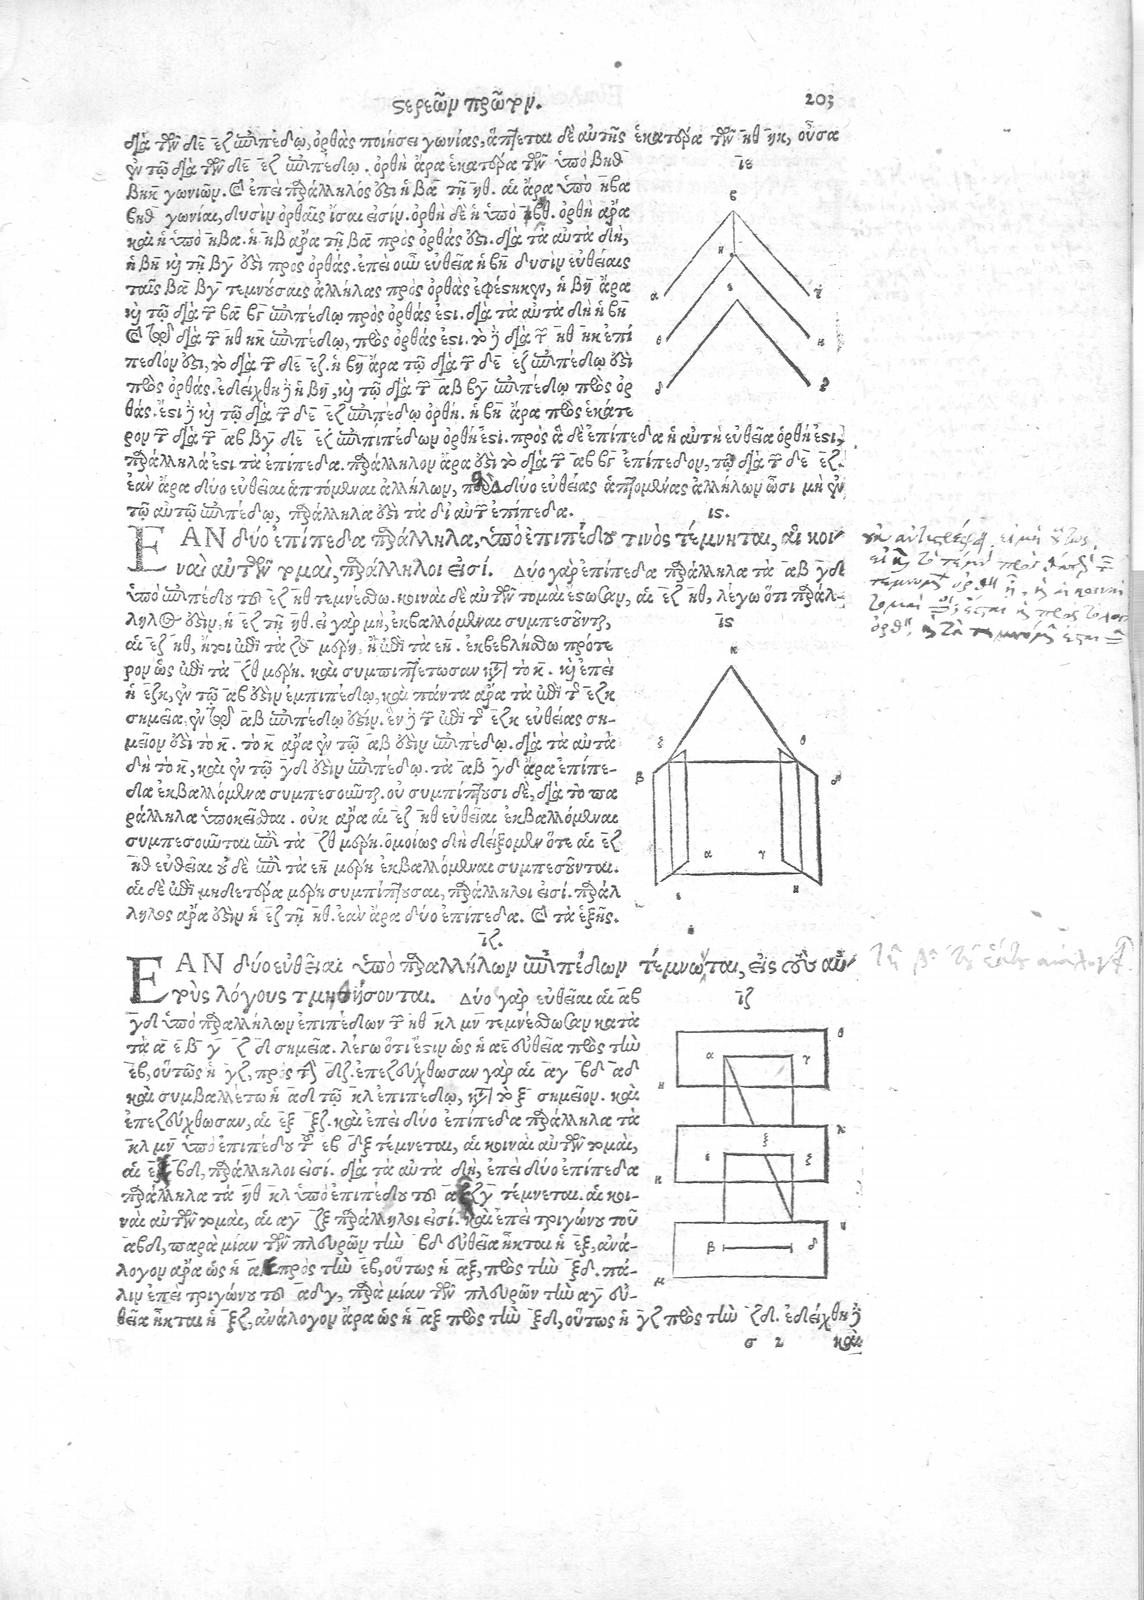 στερεῶν πρῶτον. 203
διὰ τῶν δε εζ ἐπιπέδῳ, ὀρθὰς ποιήσει γωνίας, ἅπτεται δὲ αὐτῆς ἑκατέρα τῶν ηθ ηκ, οὖσα
ἐν τῷ διὰ τῶν δε εζ ἐπιπέδῳ. ὀρθὴ ἄρα ἑκατέρα τῶν ὑπὸ βηθ
ιε
βηκ γωνιῶν. καὶ ἐπεὶ παράλληλός ἐστιν ἡ βα τῇ ηθ. αἱ ἄρα ὑπὸ ηβα
βηθ γωνίαι, δυσὶν ὀρθαῖς ἴσαι εἰσίν. ὀρθὴ δὲ ἡ ὑπὸ βηθ. ὀρθὴ ἄρα
καὶ ἡ ὑπὸ ηβα. ἡ ηβ ἄρα τῇ βα πρὸς ὀρθάς ἐστι. διὰ τὰ αὐτὰ δὴ,
ἡ βη καὶ τῇ βγ ἐστὶ πρὸς ὀρθάς. ἐπεὶ οὖν εὐθεῖα ἡ βη δυσὶν εὐθείαις
ταῖς βα βγ τεμνούσαις ἀλλήλας πρὸς ὀρθὰς ἐφέστηκεν, ἡ βη ἄρα
καὶ τῷ διὰ τῶν βα βγ ἐπιπέδῳ πρὸς ὀρθάς ἐστι. διὰ τὰ αὐτὰ δὴ ἡ βη
καὶ τῷ διὰ τῶν ηθ ηκ ἐπιπέδῳ, πρὸς ὀρθάς ἐστι. τὸ δὲ διὰ τῶν ηθ ηκ ἐπί
πεδόν ἐστι, τὸ διὰ τῶν δε εζ. ἡ βη ἄρα τῷ διὰ τῶν δε εζ ἐπιπέδῳ ἐστὶ
πρὸς ὀρθάς. ἐδείχθη δὲ ἡ βη, καὶ τῷ διὰ τῶν αβ βγ ἐπιπέδῳ πρὸς ὀρ
θάς. ἔστι δὲ καὶ τῷ διὰ τῶν δε εζ ἐπιπέδῳ ὀρθή. ἡ βη ἄρα πρὸς ἑκάτε
ρον τῶν διὰ τῶν αβ βγ δε εζ ἐπιπέδων ὀρθή ἐστι. πρὸς ἃ δὲ ἐπίπεδα ἡ αὐτὴ εὐθεῖα ὀρθή ἐστι,
παράλληλά ἐστι τὰ ἐπίπεδα. παράλληλον ἄρα ἐστὶ τὸ διὰ τῶν αβ βγ ἐπίπεδον, τῷ διὰ τῶν δε εζ.
ἐὰν ἄρα δύο εὐθεῖαι ἁπτόμεναι ἀλλήλων, παρὰ δύο εὐθείας ἁπτομένας ἀλλήλων ὦσι μὴ ἐν
τῷ αὐτῷ ἐπιπέδῳ, παράλληλα ἐστὶ τὰ δι' αὐτῶν ἐπίπεδα. ις.
ΕΑΝ δύο ἐπίπεδα παράλληλα, ὑπὸ ἐπιπέδου τινὸς τέμνηται, αἱ κοι
ναὶ αὐτῶν τομαὶ, παράλληλοι εἰσί. Δύο γὰρ ἐπίπεδα παράλληλα τὰ αβ γδ
ὑπὸ ἐπιπέδου τοῦ εζ ηθ τεμνέσθω. κοιναὶ δὲ αὐτῶν τομαὶ ἔστωσαν, αἱ εζ ηθ, λέγω ὅτι παράλ-
ληλός ἐστιν, ἡ εζ τῇ ηθ. εἰ γὰρ μὴ, ἐκβαλλόμεναι συμπεσοῦνται,
ις
αἱ εζ ηθ, ἤτοι ἐπὶ τὰ ζθ μέρη, ἢ ἐπὶ τὰ εη. ἐκβεβλήσθω πρότε
ρον ὡς ἐπὶ τὰ ζθ μέρη. καὶ συμπιπτέτωσαν κατὰ τὸ κ. καὶ ἐπεὶ
ἡ εζκ, ἐν τῷ αβ ἐστὶν ἐπιπέδῳ, καὶ πάντα ἄρα τὰ ἐπὶ τῆς εζκ
σημεῖα, ἐν τῷ αβ ἐπιπέδῳ ἐστίν. ἓν δὲ τῶν ἐπὶ τῆς εζκ εὐθείας ση-
μεῖον ἐστὶ τὸ κ. τὸ κ ἄρα ἐν τῷ αβ ἐστὶν ἐπιπέδῳ. διὰ τὰ αὐτὰ
δὴ τὸ κ, καὶ ἐν τῷ γδ ἐστὶν ἐπιπέδῳ. τὰ αβ γδ ἄρα ἐπίπε-
δα ἐκβαλλόμενα συμπεσοῦνται. οὐ συμπίπτουσι δὲ, διὰ τὸ πα
ράλληλα ὑποκεῖσθαι. οὐκ ἄρα αἱ εζ ηθ εὐθεῖαι ἐκβαλλόμεναι
συμπεσοῦνται ἐπὶ τὰ ζθ μέρη. ὁμοίως δὴ δείξομεν ὅτι αἱ εζ
ηθ εὐθεῖαι οὐδὲ ἐπὶ τὰ εη μέρη ἐκβαλλόμεναι συμπεσοῦνται.
αἱ δὲ ἐπὶ μηδέτερα μέρη συμπίπτουσαι, παράλληλοι εἰσί. παράλ
ληλος ἄρα ἐστὶν ἡ εζ τῇ ηθ. ἐὰν ἄρα δύο ἐπίπεδα. καὶ τὰ ἑξῆς.
ιζ.
ΕΑΝ δύο εὐθεῖαι ὑπὸ παραλλήλων ἐπιπέδων τέμνωνται, εἰς τοὺς αὐ
τοὺς λόγους τμηθήσονται. Δύο γὰρ εὐθεῖαι αἱ αβ
ιζ
γδ ὑπὸ παραλλήλων ἐπιπέδων τῶν ηθ κλ μν τεμνέσθωσαν κατὰ
τὰ α ε β γ ζ δ σημεῖα. λέγω ὅτι ἔστιν ὡς ἡ αε εὐθεῖα πρὸς τὴν
εβ, οὕτως ἡ γζ, πρὸς τὴν δζ. ἐπεζεύχθωσαν γὰρ αἱ αγ βδ αδ
καὶ συμβαλλέτω ἡ αδ τῷ κλ ἐπιπέδῳ, κατὰ τὸ ξ σημεῖον. καὶ
ἐπεζεύχθωσαν, αἱ εξ ξζ. καὶ ἐπεὶ δύο ἐπίπεδα παράλληλα τὰ
κλ μν ὑπὸ ἐπιπέδου τοῦ εβ δξ τέμνεται, αἱ κοιναὶ αὐτῶν τομαὶ,
αἱ εξ βδ, παράλληλοι εἰσί. διὰ τὰ αὐτὰ δὴ, ἐπεὶ δύο ἐπίπεδα
παράλληλα τὰ ηθ κλ ὑπὸ ἐπιπέδου τοῦ αξζγ τέμνεται. αἱ κοι-
ναὶ αὐτῶν τομαὶ, αἱ αγ ζξ παράλληλοι εἰσί. καὶ ἐπεὶ τριγώνου τοῦ
αβδ, παρὰ μίαν τῶν πλευρῶν τὴν βδ εὐθεῖα ἦκται ἡ εξ, ἀνά-
λογον ἄρα ὡς ἡ αε πρὸς τὴν εβ, οὕτως ἡ αξ, πρὸς τὴν ξδ. πά-
λιν ἐπεὶ τριγώνου τοῦ αδγ, παρὰ μίαν τῶν πλευρῶν τὴν αγ εὐ-
θεῖα ἦκται ἡ ξζ, ἀνάλογον ἄρα ὡς ἡ αξ πρὸς τὴν ξδ, οὕτως ἡ γζ πρὸς τὴν ζδ. ἐδείχθη δὲ
σ 2 καὶ